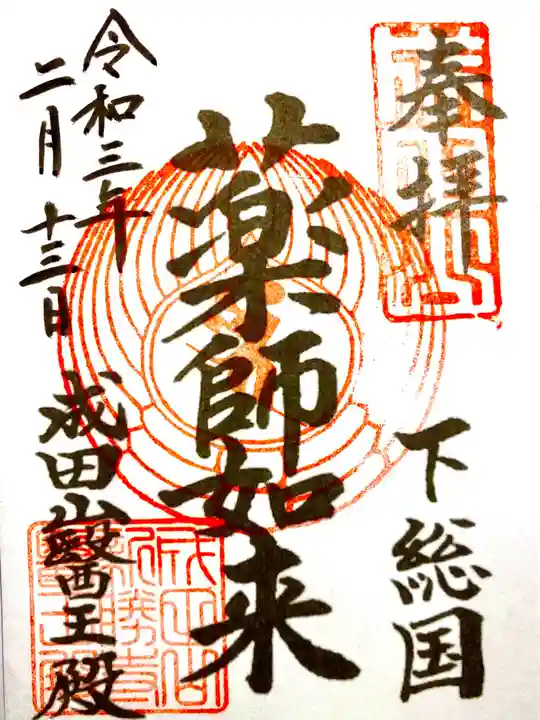 奉拝
下総国
薬師如来
令和三年
二月十三日
成田山醫王殿